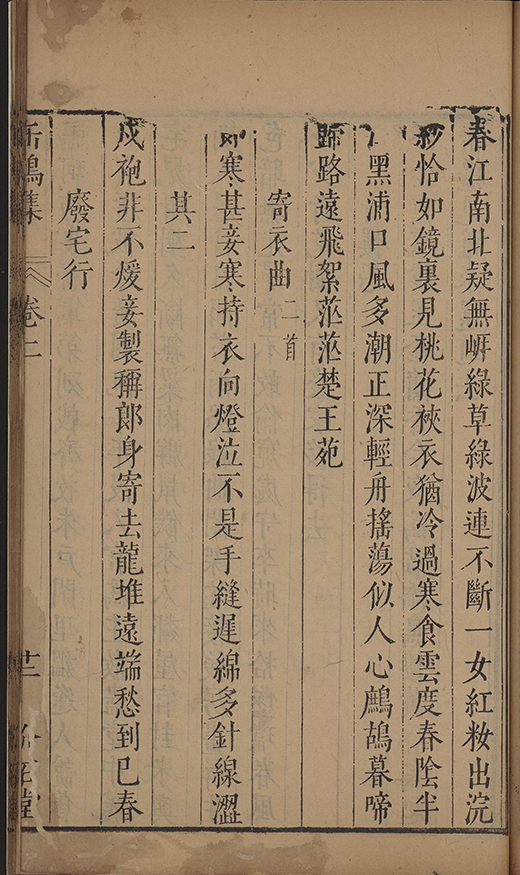 春江南北疑無岸綠草綠波連不斷一女紅妝出浣
紗恰如鏡裏見桃花裌衣猶冷過寒食雲度春陰半
黑浦口風多潮正深輕舟搖蕩似人心鷓鴣暮啼
歸路遠飛絮茫茫楚王苑
寄衣曲二首
郎寒甚妾寒持衣向燈泣不是手縫遲綿多針線澀
其二
戍袍非不煖妾製稱郎身寄去龍堆遠端愁到巳春
廢宅行
鳴集 卷二 廿一